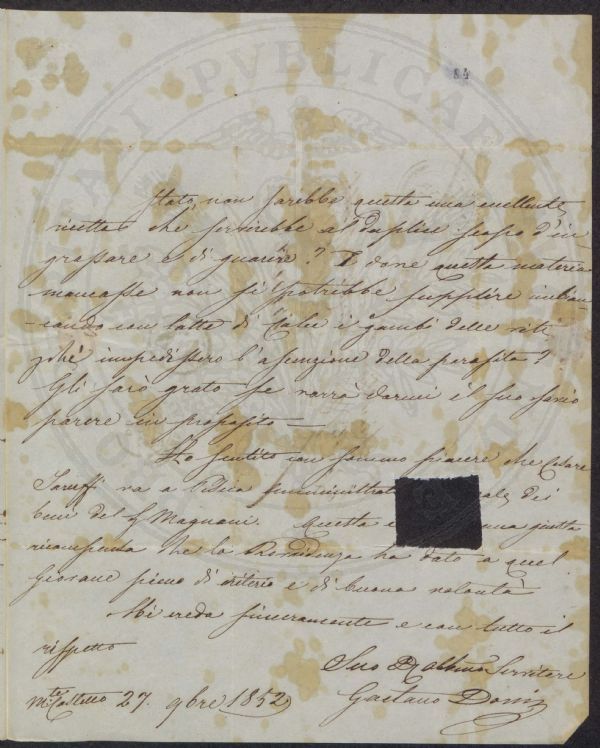 84
stato, non sarebbe questa una eccellente
ricetta che servirebbe al duplice scopo d'in-
grassare e di guarire? E dove questa materia
mancasse non si potrebbe supplire imbian-
cando con latte di Calce i gambi delle viti
che impedissero l'ascenzione della parasita?
Gli sarò grato se vorrà darmi il suo savio
parere in proposito =
Ho sentito con sommo piacere che Cesare
Taruffi va a amministrat dei
beni del Magnani. Questa è una giusta
ricompensa che la Provvidenza ha dato a quel
giovane pieno di criterio e di buona volontà
Mi creda sinceramente e con tutto il
rispetto
Suo Servitore
Gaetano
Castello 27. 9bre 1852